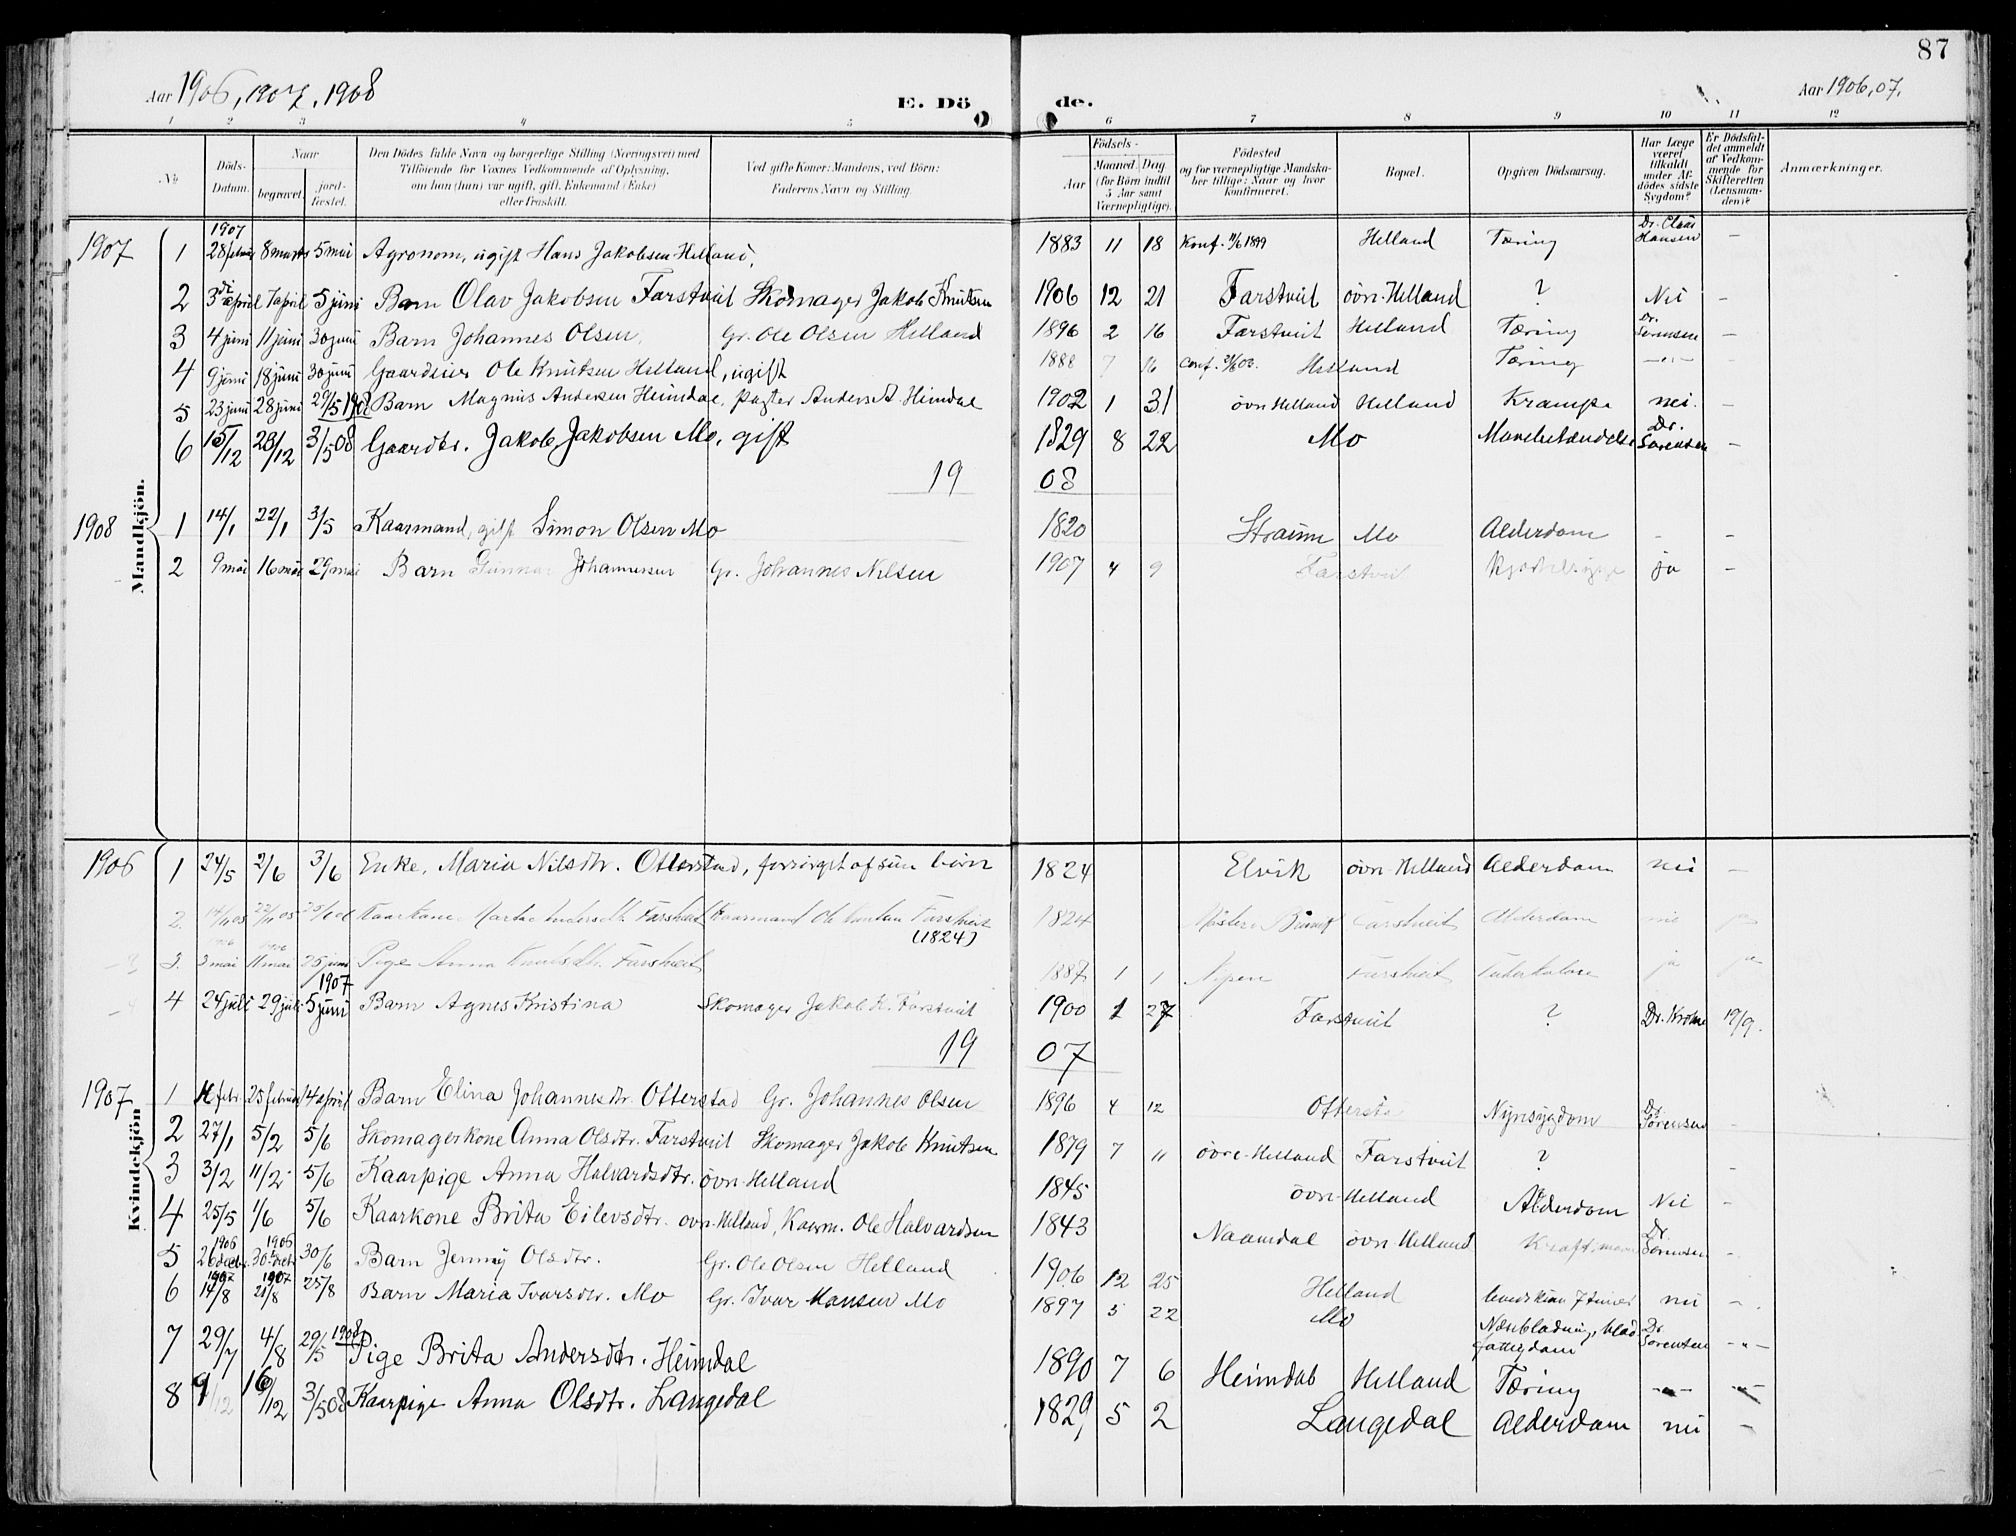 87
Aar 1906, 1907, 1908 E. Dö de. Aar 1906, 07.
1 2 3 4 5 6 7 8 9 10 11 12
Nr. Döds-Datum. Naar begravet. jord-fæstet. Den Dödes fulde Navn og borgerlige Stilling (Næringsvei) med Tilföiende for Voxnes Vedkommende af Oplysning, om han (hun) var ugift, gift, Enkemand (Enke) eller fraskilt. Ved gifte Koner: Mandens, ved Börn: Faderens Navn og Stilling. Födsels- Aar Maaned. Dag (for Börn indtil 5 Aar samt Værnepligtige). Födested og for værnepligtige Mandska-ber tillige: Naar og hvor konfirmeret. Bopæl. Opgiven Dödsaarsag. Har Læge været tilkaldt under Af-dödes sidste Sygdom? Er Dödsfal-det anmeldt af Vedkom-mende for Skifteretten (Lensman-den)? Anmærkninger.
Mandkjön.
1907 1 1907 28 febru 8 marts 5 mai Agronom, ugift Hans Jakobsen Helland, 1883 11 18 Konf. 1899 Helland Tæring Dr. Claus Hansen –
2 3 april 7 april 5 juni Barn Olav Jakobsen Farstveit Skomager Jakob Knutsen 1906 12 21 Farstveit övr. Helland ? Nei –
3 4 juni 11 juni 30 juni Barn Johannes Olsen, Gr. Ole Olsen Helland 1896 2 16 Farstveit Helland Tæring Dr. Sörensen –
4 9 juni 18 juni 30 juni Gaardeier Ole Knutsen Helland, ugift 1888 7 16 Conf. Helland Tæring –"–
5 23 juni 28 juni 29/5 1908 Barn Magnus Andersen Heimdal, Pagter Anders A. Heimdal 1902 1 31 övr. Helland Helland Krampe nei. –
6 15/12 23/12 3/5 08 Gaardbr. Jakob Jakobsen Mo, gift 1829 8 22 Mo Mavebetændelse Dr. Sörensen –
19 08
1908 1 14/1 22/1 3/5 Kaarmand, gift Simon Olsen Mo 1820 Straume Mo Alderdom – –
2 9 mai 16 mai 29 mai Barn Gunnar Johannessen Gr. Johannes Nilsen 1907 4 9 Farstveit ja –
Kvindekjön
1906 1 24/5 2/6 3/6 Enke, Maria Nilsdtr. Otterstad, forsörget af sine börn 1824 Elvik övr. Helland Alderdom nei –
2. 14/11 05 22/11 05 25/6 06 Kaarkone Martha Andersdtr. Farstveit Kaarmand Ole Farstveit (1824) 1824 Farstveit Alderdom nei ja
3. 1906 3 mai 1906 11 mai 25 juni Pige Anna Knutsdtr. Farstveit 1887 1 1 Nypen Farstveit Tuberkulose ja ja
4 24 juli 29 juli 1907 5 juni Barn Agnes Kristina Skomager Jakob K. Farstveit 1900 1 27 Farstveit ? Dr. Krohn 19/9.
19 07
1907 1 febr. 25 februar 14 april Barn Elina Johannesdtr. Otterstad Gr. Johannes Olsen 1896 4 12 Otterstad Nyresygdom Dr. Sörensen
2 27/1 5/2 5/6 Skomagerkone Anna Olsdtr. Farstveit Skomager Jakob Knutsen 1879 7 11 övre Helland Farstveit ? –
3 3/2 11/2 5/6 Kaarpige Anna Halvardsdtr. övr. Helland 1845 övr. Helland Alderdom Nei –
4 25/5 1/6 5/6 Kaarkone Brita Eilevsdtr. övr. Helland, Kaarm. Ole Halvardsen 1843 Naamdal övr. Helland Kræft Dr. Sörensen –
5 1906 26 decbr. 1906 30 decbr. 30/6 Barn Jenny Olsdtr. Gr. Ole Olsen Helland 1906 12 25 Helland levede kun 7 timer nei –
6 1907 14/8 1907 20/8 25/8 Barn Maria Ivarsdtr. Mo Gr. Ivar Hansen Mo 1897 5 22 Mo Næseblödning, blodfattigdom Dr. Sörensen –"–
7 29/7 4/8 29/5 1908 Pige Brita Andersdtr. Heimdal 1890 7 6 Heimdal Helland Tæring –"– –"–
8 9/12 16/12 3/5 08 Kaarpige Anna Olsdtr. Langedal 1829 5 2 Langedal Alderdom nei –